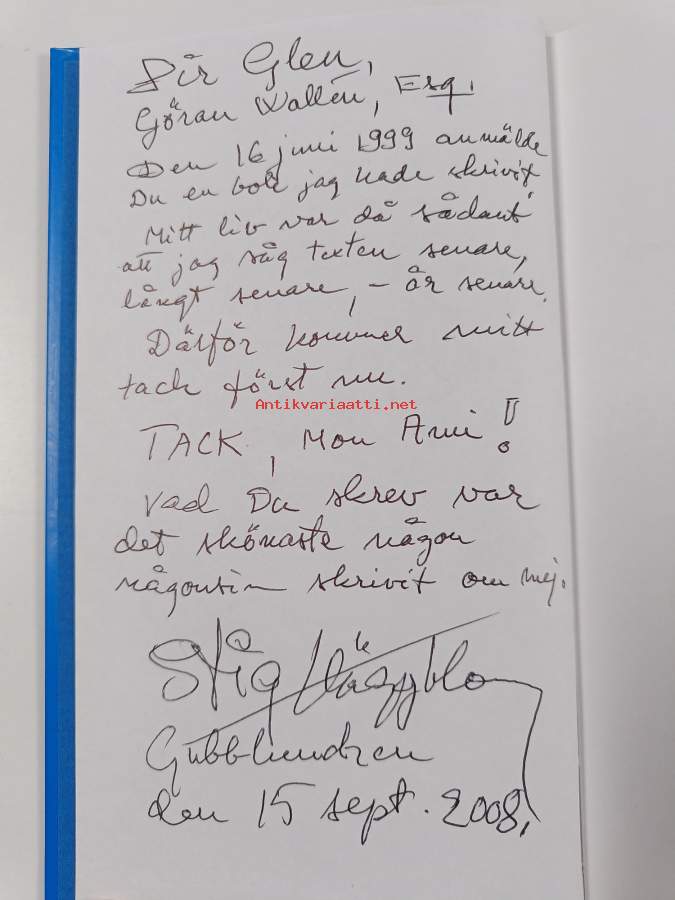 Sir Glen,
Göran Wallén, Esq.
Den 16 juni 1999 anmälde
Du en bok jag hade skrivit
Mitt liv var då sådant
att jag såg texten senare,
långt senare, - år senare.
Därför kommer mitt
tack först nu.
Antikvariaatti.net
TACK, Mon Ami!
Vad Du skrev var
det skönaste någon
någonsin skrivit om mej.
Stig
Gubbhundzen
den 15 sept. 2008.